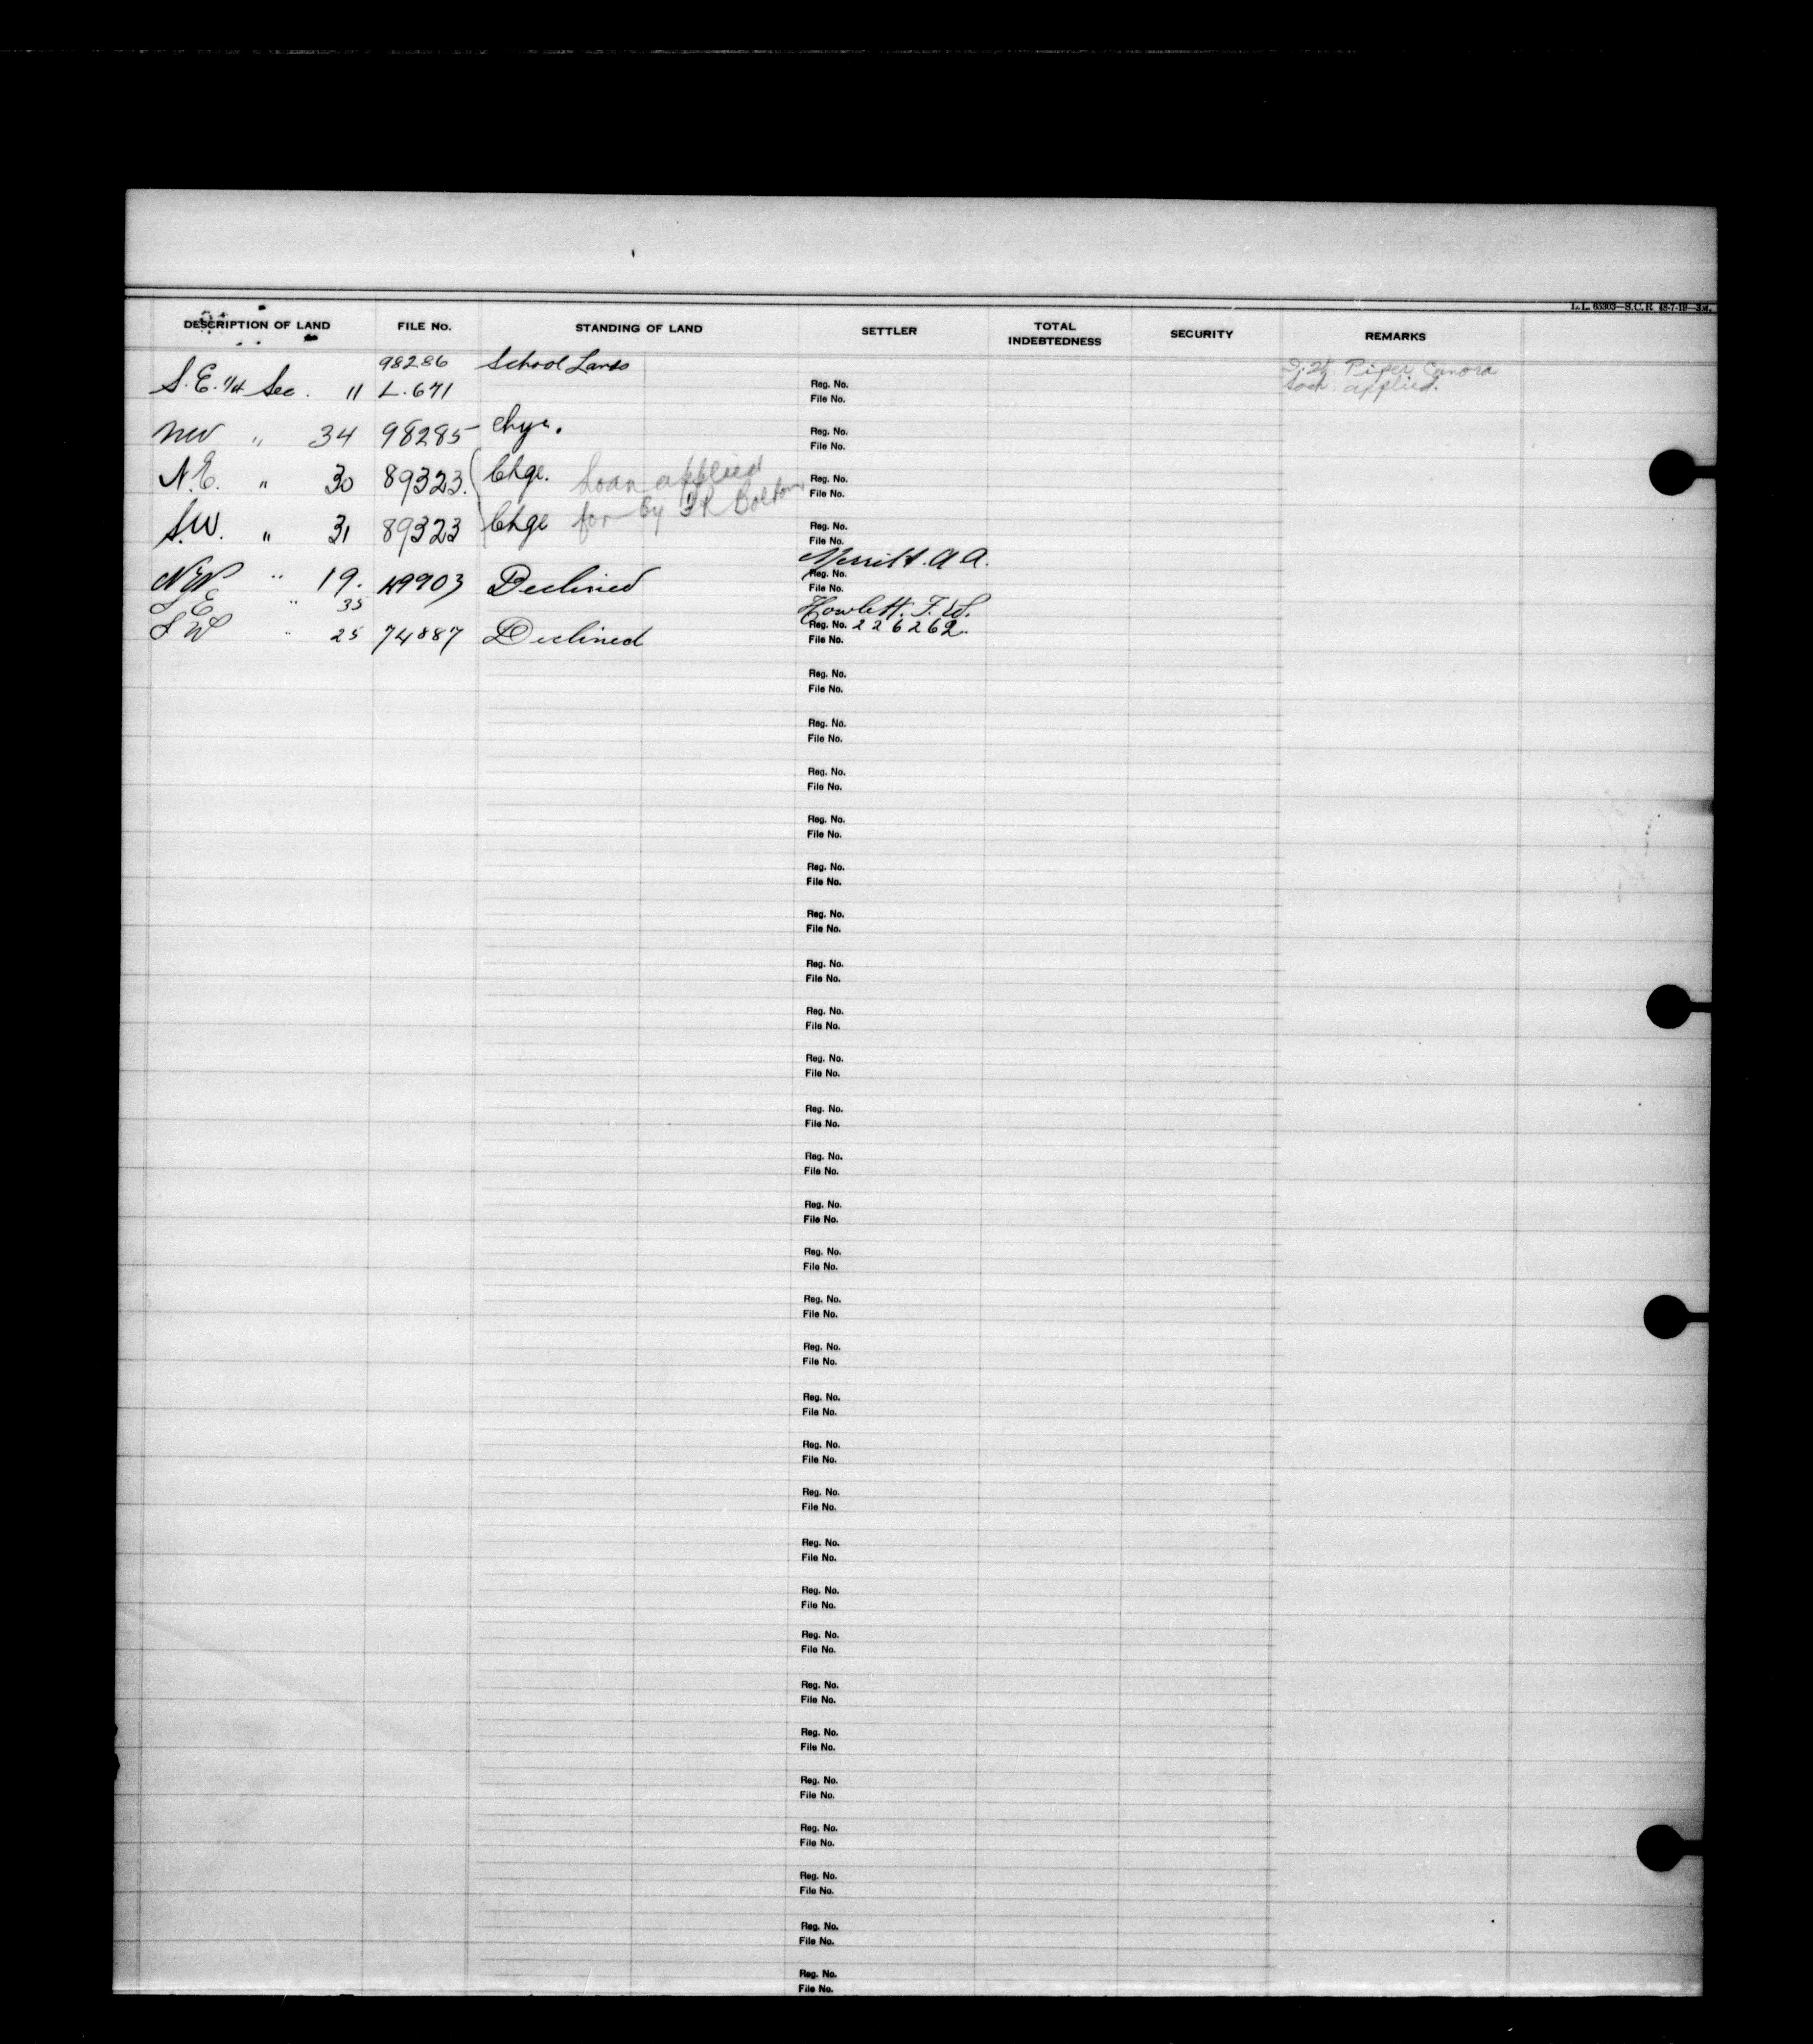 L.L. 65303—S.C.R. 48-7-19—3M.
DESCRIPTION OF LAND FILE No. STANDING OF LAND SETTLER TOTAL INDEBTEDNESS SECURITY REMARKS
98286 School Lands Piper Canora
S.E. 1/4 Sec. 11 L.671 Reg. No. applied.
File No.
NW " 34 98285 Chge. Reg. No.
File No.
N.E. " 30 89323. Chge. Loan applied Reg. No.
File No.
S.W. " 31 89323 Chge for by Bolton Reg. No.
File No.
Merritt. A A.
" 19. 49903 Declined Reg. No.
File No.
E " 35 Howlett. F. W.
S W " 25 74887 Declined Reg. No. 226262.
File No.
Reg. No.
File No.
Reg. No.
File No.
Reg. No.
File No.
Reg. No.
File No.
Reg. No.
File No.
Reg. No.
File No.
Reg. No.
File No.
Reg. No.
File No.
Reg. No.
File No.
Reg. No.
File No.
Reg. No.
File No.
Reg. No.
File No.
Reg. No.
File No.
Reg. No.
File No.
Reg. No.
File No.
Reg. No.
File No.
Reg. No.
File No.
Reg. No.
File No.
Reg. No.
File No.
Reg. No.
File No.
Reg. No.
File No.
Reg. No.
File No.
Reg. No.
File No.
Reg. No.
File No.
Reg. No.
File No.
Reg. No.
File No.
Reg. No.
File No.
Reg. No.
File No.